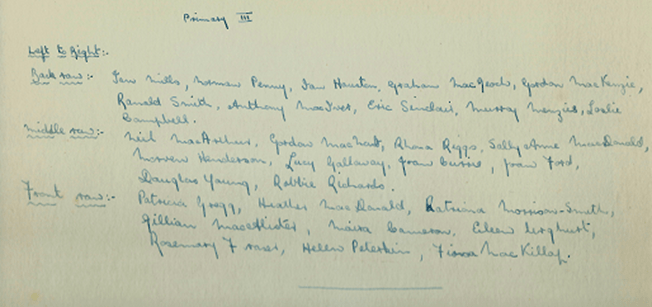 Primary III
Left to Right:-
Back row:- Ian Mills, Norman Penny, Ian Houston, Graham MacGeoch, Gordon MacKenzie,
Ranald Smith, Anthony MacIver, Eric Sinclair, Murray Menzies, Leslie
Campbell.
Middle row:- Neil MacArthur, Gordon Rhora Riggs, Sally Anne MacDonald,
Morven Henderson, Lucy Gallaway, Joan Currie, Joan Ford,
Douglas Young, Robbie Richards.
Front row:- Patricia Gregg, Heather MacDonald, Katriona Morrison-Smith,
Gillian MacAllister, Maira Cameron, Eileen Urquhart,
Rosemary Fraser, Helen Peterkin, Fiona MacKillop.